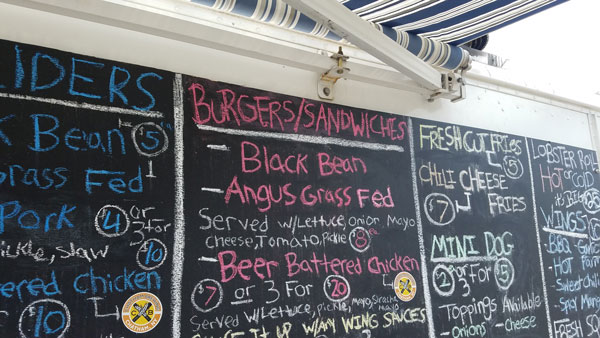 IDERS
k Bean $5
rass Fed
Pork $4 or 3 for $10
ickle, slaw
ered Chicken
$10
BURGERS/SANDWICHES
- Black Bean
- Angus Grass Fed
Served w/Lettuce, onion, Mayo
cheese, Tomato, Pickle
- Beer Battered Chicken
$7 or 3 For $20
Served w/Lettuce, Pickle, Mayo, Sriracha mayo
IT UP w/ANY WING SAUCES
FRESH CUT FRIES $5
CHILI CHEESE FRIES
$7
MINI DOG
or 3 for $5
Toppings Available
- onions - Cheese
LOBSTER ROLL
HOT or COLD
WINGS
- BBQ
- Hot
- Swee
FRESH SQ